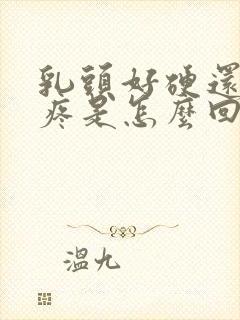 乳頭好硬還
疼是怎麼回
溫九